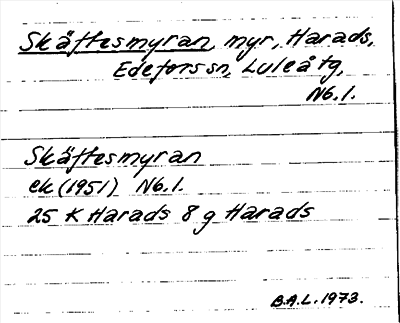 Skäftesmyran, myr, Harads,
Edeforssn, Luleå tg,
Nb. l.
Skäftesmyran
ek (1951) Nb. l.
25 K Harads 8 g Harads
B.A.L. 1973.